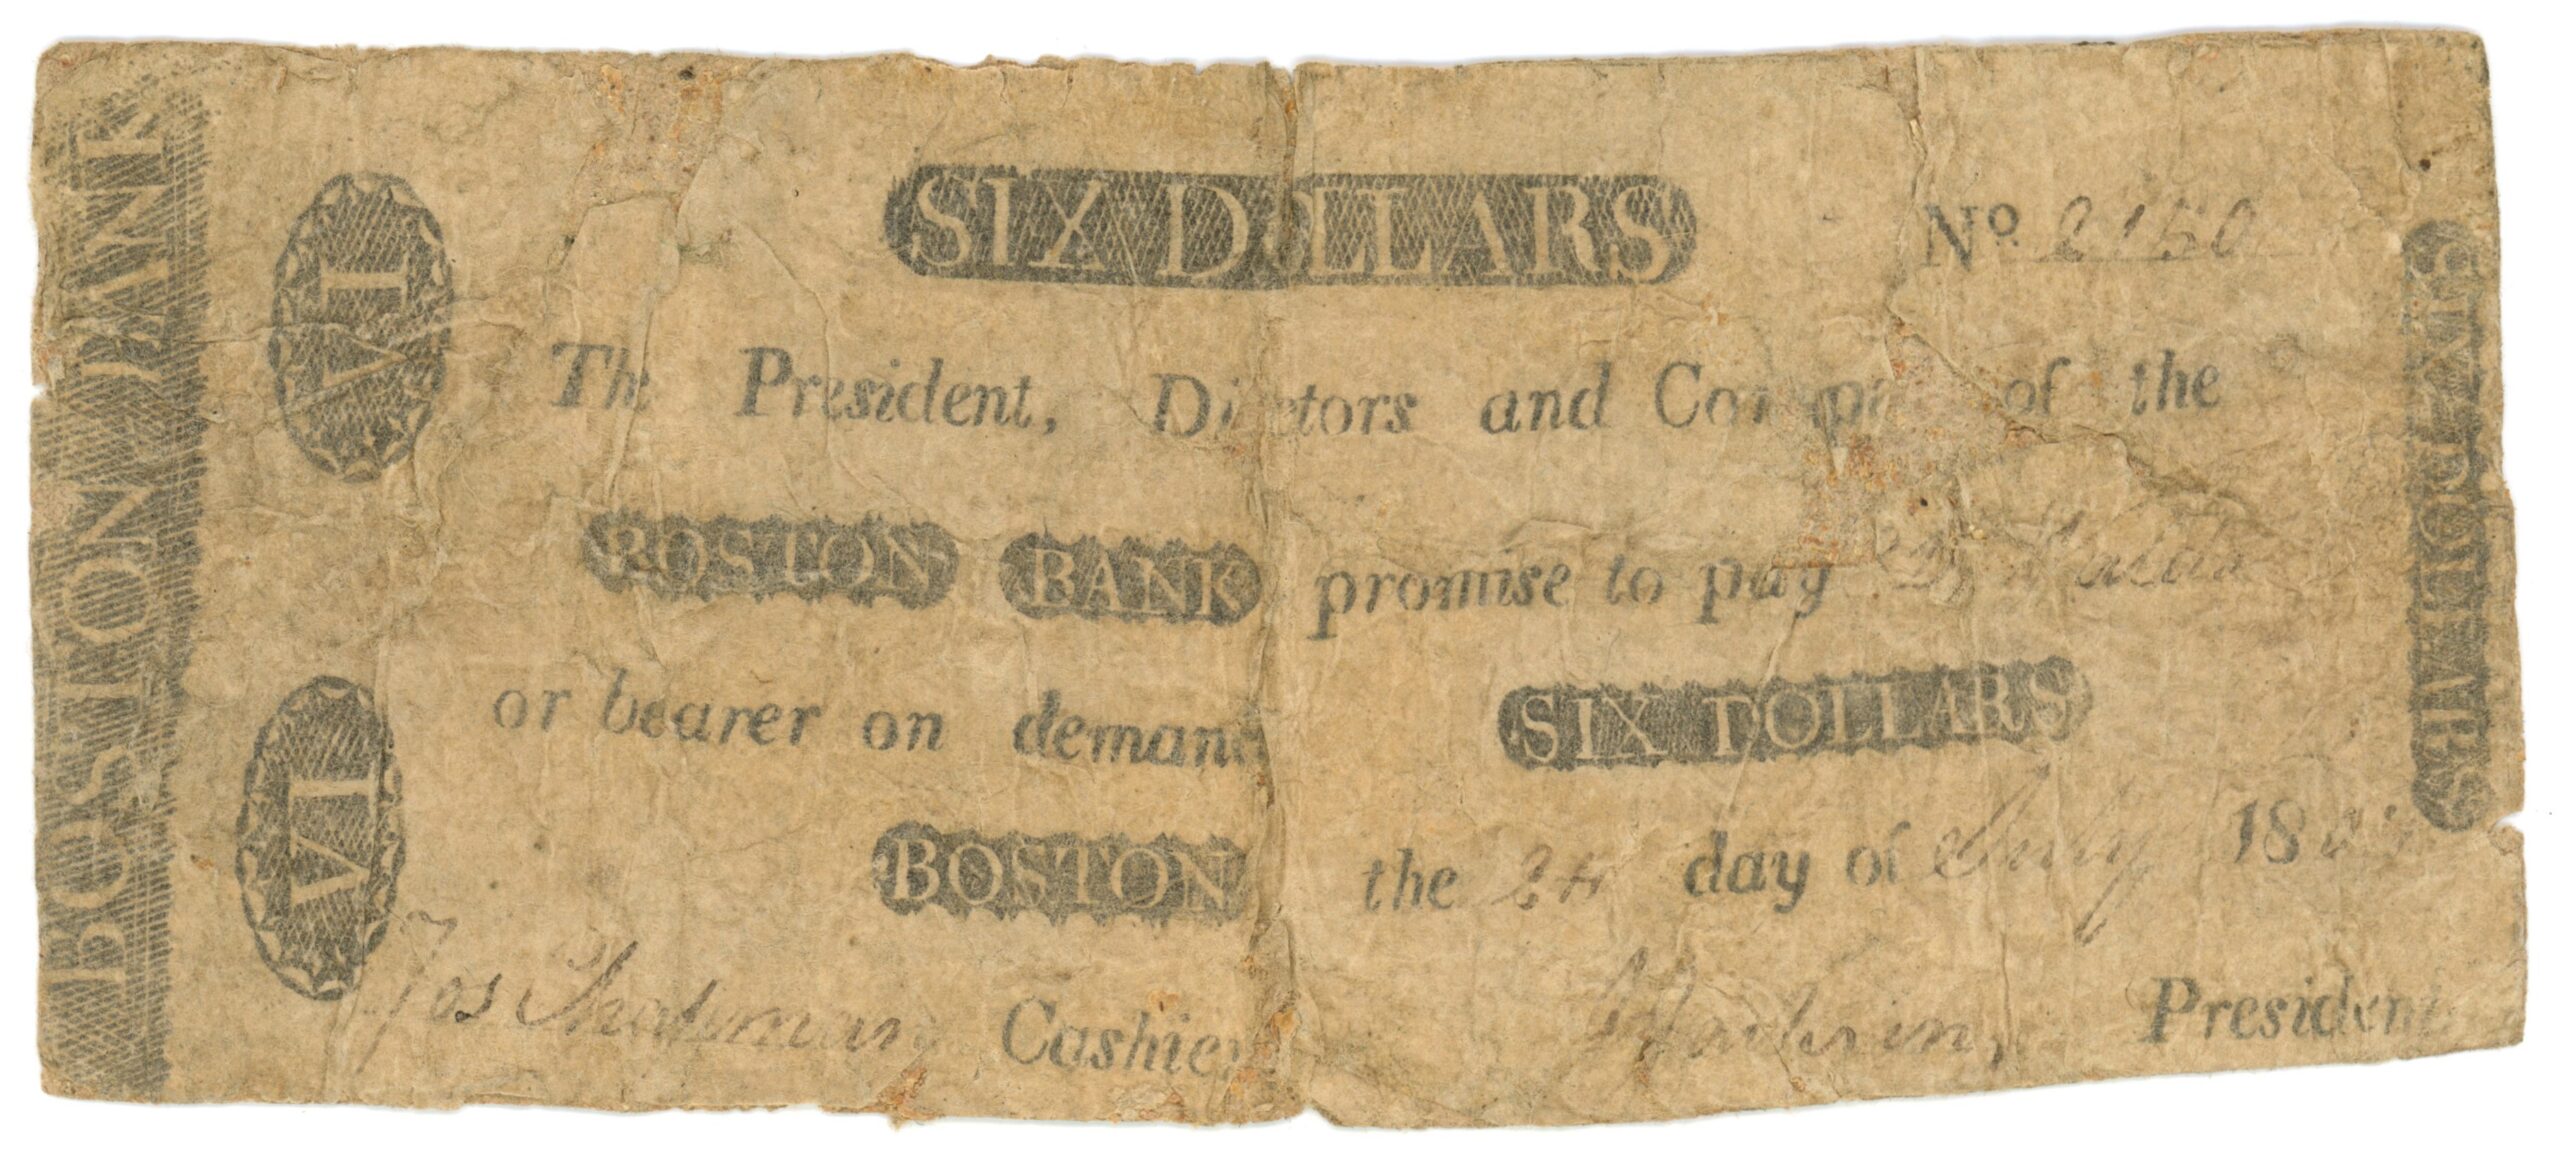 BOSTON BANK
VI
VI
SIX DOLLARS
No. 2150
The President, Directors and Comp of the
BOSTON BANK promise to pay
or bearer on demand SIX DOLLARS
BOSTON the day of July 18
Cashier President
SIX DOLLARS